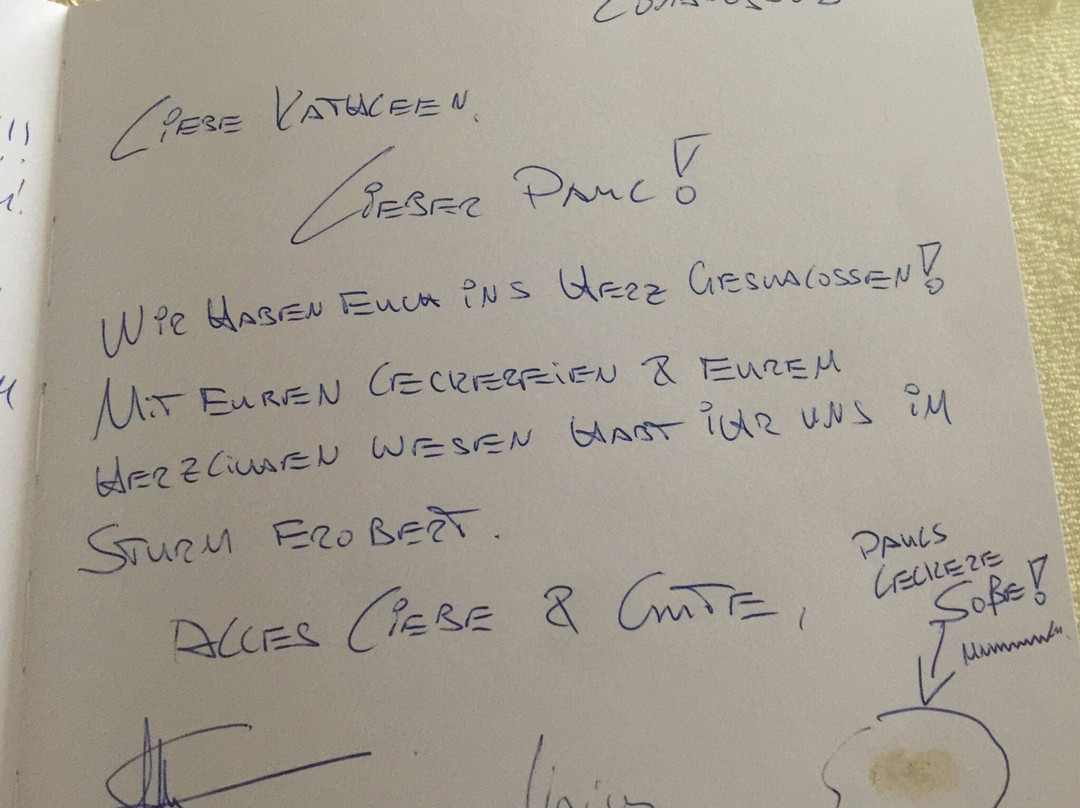 Liebe Kathleen,
Lieber Paul!
Wir haben Euch ins Herz geschlossen!
Mit Euren Leckereien & Eurem
herzlichen Wesen habt ihr uns im
Sturm erobert.
Alles Liebe & Gute,
Pauls
leckere
Soße!
Mmmmmh